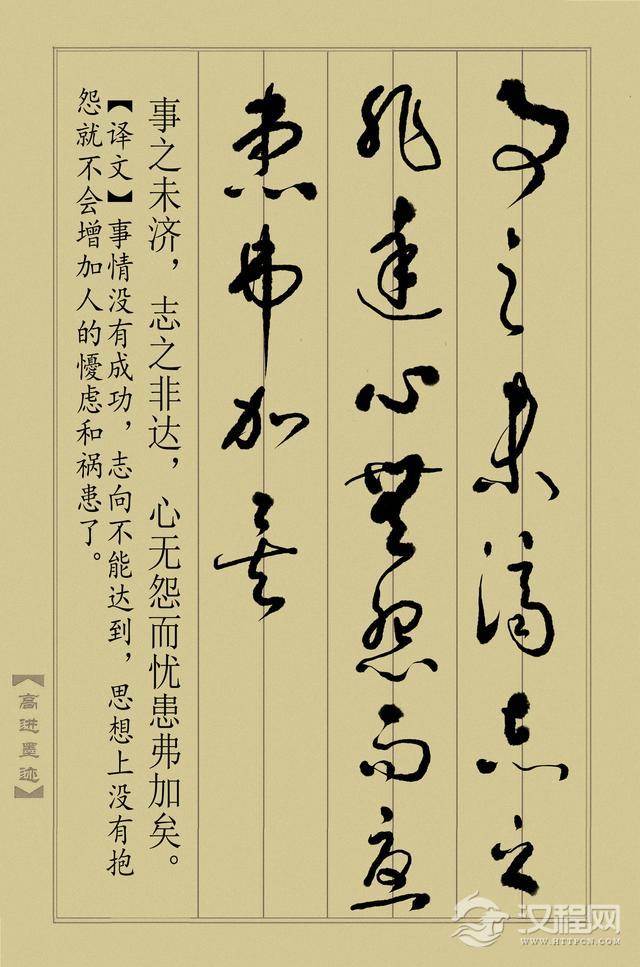 事之未济志之
非达心无怨而忧
患弗加矣
事之未济，志之非达，心无怨而忧患弗加矣。
【译文】事情没有成功，志向不能达到，思想上没有抱
怨就不会增加人的懮虑和祸患了。
【高进墨迹】
汉程网
WWW.HTTPCN.COM